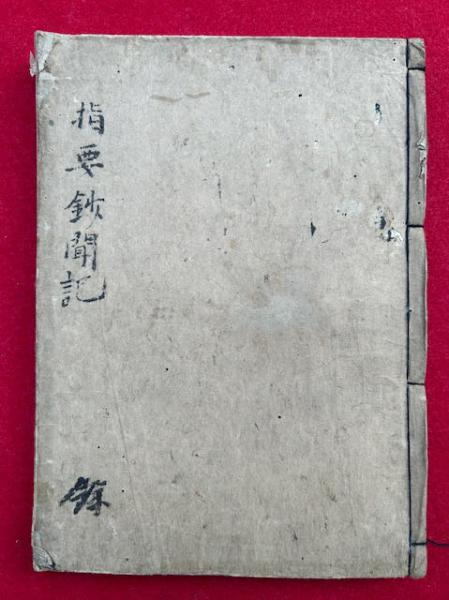 指要鈔聞記
餘